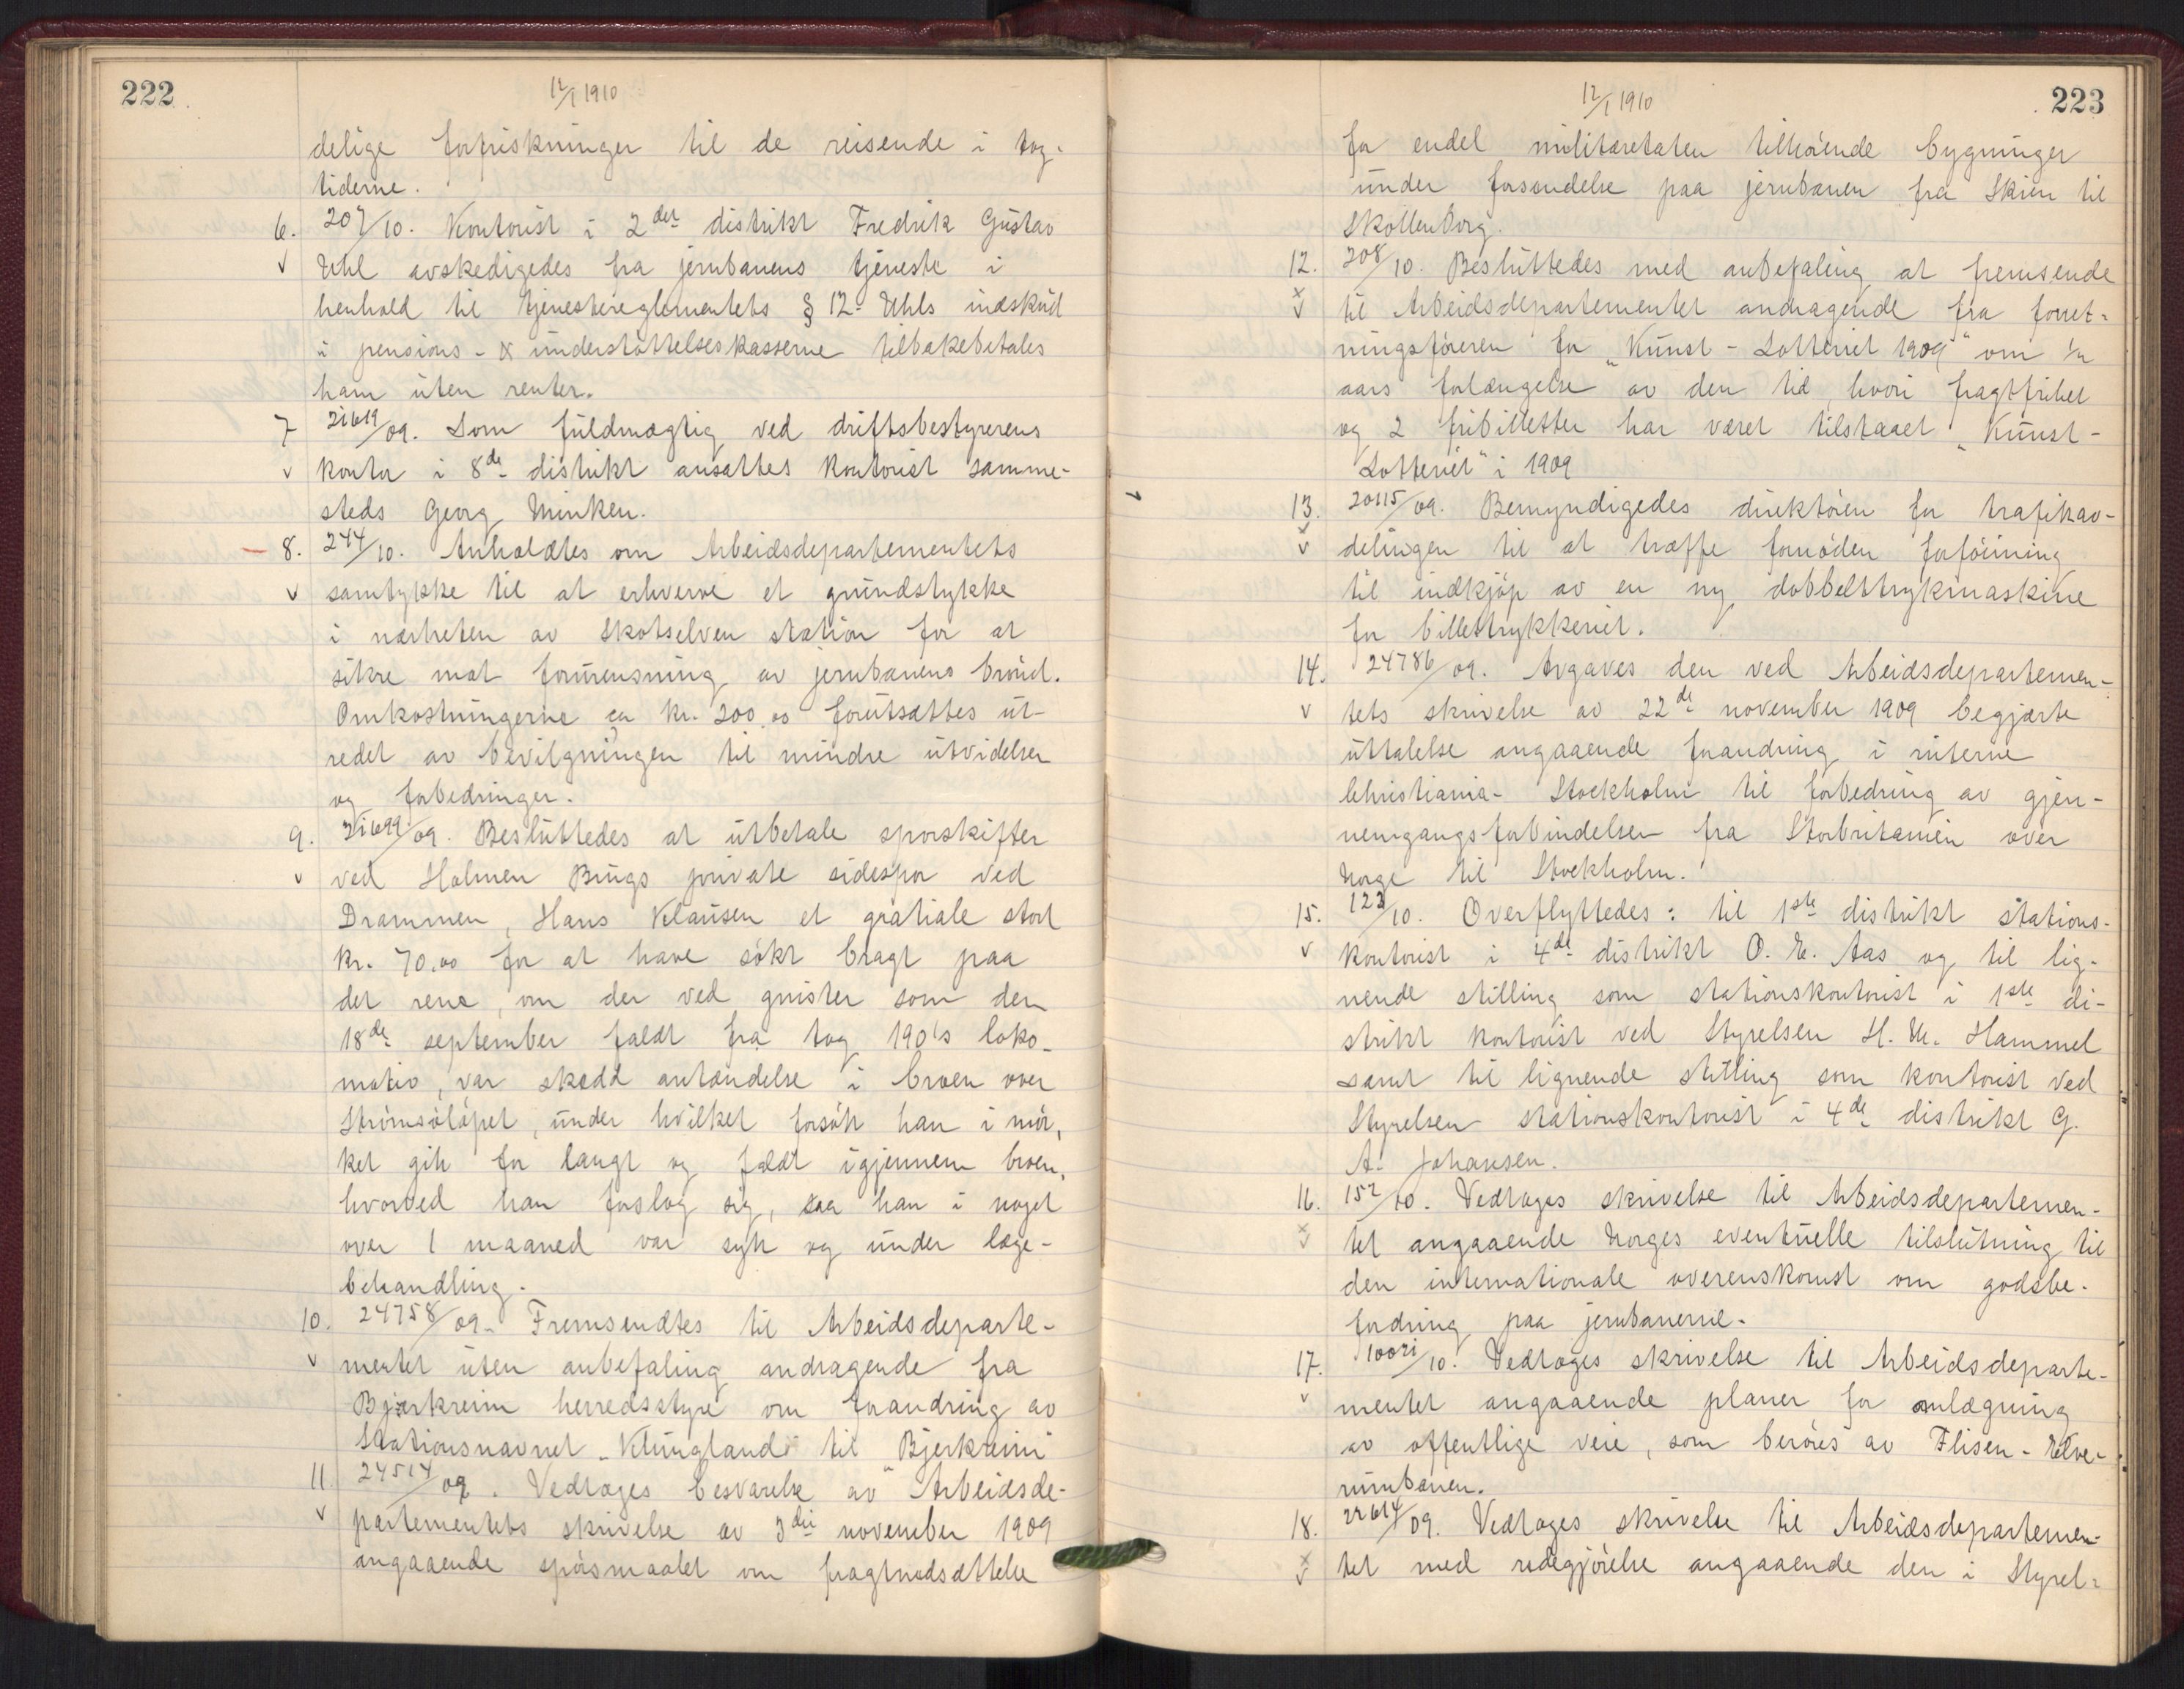 222
12/1 1910
delige forfriskninger til de reisende i tog-
tiderne.
6. 207/10. Kontorist i 2det distrikt Fredrik Gustav
v Uhl avskedigedes fra jernbanens tjeneste i
henhold til tjenestereglementets § 12. Uhls indskud
i pensions- & understøttelseskasserne tilbakebetales
ham uten renter.
7 21619/09. Som fuldmægtig ved driftsbestyrerens
v kontor i 8de distrikt ansattes kontorist samme-
steds Georg Minken.
8. 244/10. Anholdtes om Arbeidsdepartementets
v samtykke til at erhverve et grundstykke
i nærheten av Skotselven station for at
sikre mot forurensning av jernbanens brønd.
Omkostningerne ca kr. 200.00 forutsattes ut-
redet av bevilgningen til mindre utvidelser
og forbedringer.
9. 21699/09. Besluttedes at utbetale sporskifter
v ved Holmen Brugs private sidespor ved
Drammen, Hans Klausen et gratiale stort
kr. 70.00 for at have søkt bragt paa
det rene, om der ved gnister som den
18de september faldt fra tog 190's loko-
motiv, var skedd antændelse i broen over
Strømsøløpet, under hvilket forsøk han i mør-
ket gik for langt og faldt igjennem broen,
hvorved han forslog sig, saa han i noget
over 1 maaned var syk og under læge-
behandling.
10. 24758/09. Fremsendtes til Arbeidsdeparte-
v mentet uten anbefaling andragende fra
Bjerkreim herredsstyre om forandring av
stationsnavnet "Klungland" til "Bjerkreim"
11. 24514/09. Vedtoges besvarelse av Arbeidsde-
v partementets skrivelse av 3die november 1909
angaaende spørsmaalet om fragtnedsættelse
223
12/1 1910
for endel militæretaten tilhørende bygninger
under forsendelse paa jernbanen fra Skien til
Skollenborg.
12. 208/10. Besluttedes med anbefaling at fremsende
x v til Arbeidsdepartementet andragende fra forret-
ningsføreren for "Kunst-Lotteriet 1909" om 1/2
aars forlængelse av den tid, hvori fragtfrihet
og 2 fribilletter har været tilstaaet "Kunst-
Lotteriet" i 1909
13. 20115/09. Bemyndigedes direktøren for trafikav-
v v delingen til at træffe fornøden forføining
til indkjøp av en ny dobbelttrykmaskine
for billettrykkeriet.
14. 24786/09. Avgaves den ved Arbeidsdepartemen-
v tets skrivelse av 22de november 1909 begjærte
uttalelse angaaende forandring i ruterne
Christiania- Stockholm til forbedring av gjen-
nemgangsforbindelsen fra Storbritanien over
Norge til Stockholm.
15. 123/10. Overflyttedes: til 1ste distrikt stations-
v kontorist i 4de distrikt O. E. Aas og til lig-
nende stilling som stationskontorist i 1ste di-
strikt kontorist ved Styrelsen H. M. Hammel
samt til lignende stilling som kontorist ved
Styrelsen stationskontorist i 4de distrikt G.
A. Johansen.
16. 152/10. Vedtoges skrivelse til Arbeidsdepartemen-
x v tet angaaende Norges eventuelle tilslutning til
den internationale overenskomst om godsbe-
fordring paa jernbanerne.
17. 10021/10. Vedtoges skrivelse til Arbeidsdeparte-
v mentet angaaende planer for omlægning
av offentlige veie, som berøres av Flisen-Elve-
rumbanen.
18. 22614/09. Vedtoges skrivelse til Arbeidsdepartemen-
x v tet med redegjørelse angaaende den i Styrel-